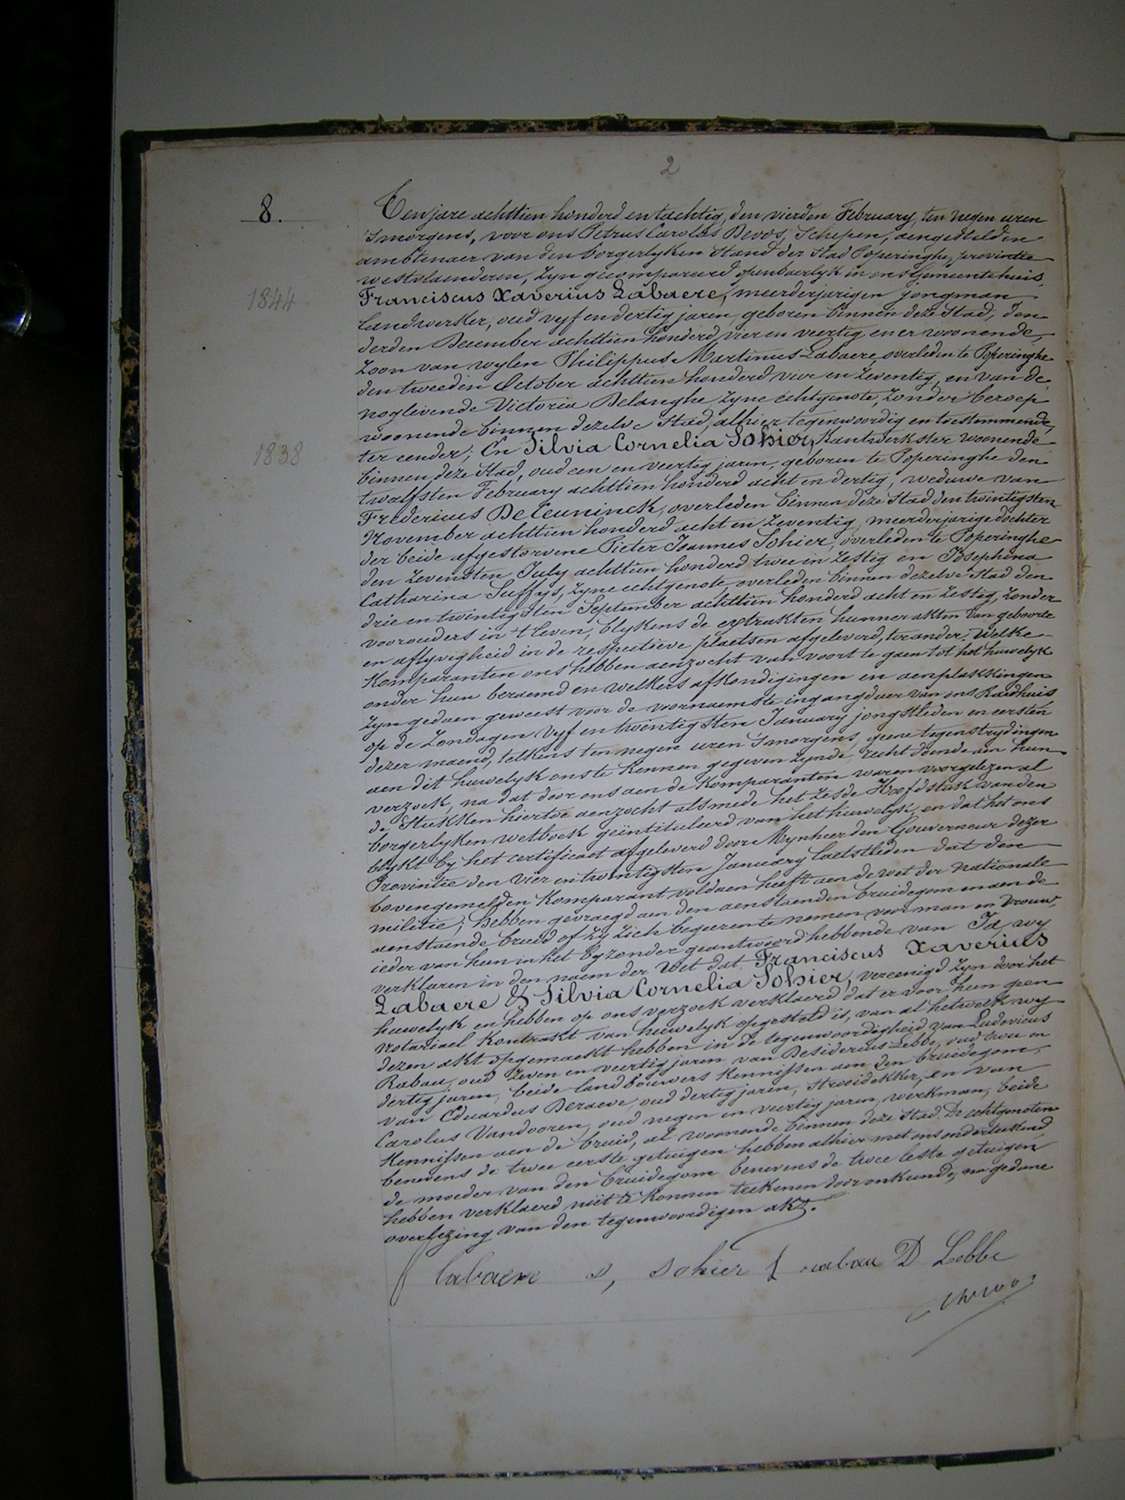 2
8.
Ten jare achttien honderd en tachtig, den vierden February, ten negen uren
'smorgens, voor ons Petrus Carolus Devos, Schepen, aengestelden
ambtenaer van den borgerlyken Stand der Stad Poperinghe, provintie
westvlaenderen, zyn gecompareerd openbaerlyk in ons gemeentehuis,
Franciscus Xaverius Labaere, meerderjarigen jongman
1844
landwerker, oud vyf en dertig jaren, geboren binnen deze Stad, den
derden December achttien honderd vier en veertig en er woonende,
zoon van wylen Philippus Martinus Labaere, overleden te Poperinghe
den tweeden October achttien honderd vier en zeventig, en van de
noglevende Victoria Delanghe zyne echtgenote, zonder beroep
woonende binnen dezelve Stad, alhier tegenwoordig en toestemmende,
ter eender; En Silvia Cornelia Sohier, kantwerkster woonende
1838
binnen deze Stad, oud een en veertig jaren, geboren te Poperinghe den
twaalfsten February achttien honderd acht en dertig, weduwe van
Fredericus Deceuninck, overleden binnen deze Stad den twintigsten
November achttien honderd acht en zeventig, meerderjarige dochter
der beide afgestorvene Pieter Joannes Sohier, overleden te Poperinghe
den zevensten July achttien honderd twee en zestig en Josephina
Catharina Suffys, zyne echtgenote overleden binnen dezelve Stad den
drie en twintigsten September achttien honderd acht en zestig, zonder
voorouders in 't leven, blykens de extrakten hunner akten van geboorte
en aflyvigheid in de respective plaetsen afgeleverd, ter ander; Welke
Komparanten ons hebben aenzocht van voort te gaen tot het huwelyk
onder hun beraemd en welkers afkondigingen en aenplakkingen
zyn gedaen geweest voor de voornaemste ingangdeur van ons Raedhuis
op de Zondagen vyf en twintigsten January jongstleden en eersten
dezer maend, telkens ten negen uren 'smorgens, geene tegenstrydingen
aen dit huwelyk ons te kennen gegeven zynde, recht doende aen hun
verzoek, na dat door ons aen de Komparanten waren voorgelezen al
de Stukken hiertoe aenzocht alsmede het zesde Hoofdstuk van den
borgerlyken wetboek geintituleerd van het huwelyk, en dat het ons
blykt by het certificaet afgeleverd door Mynheer den Gouverneur dezer
Provintie den vier en twintigsten January laetstleden dat den
bovengemelden Komparant voldaen heeft aen de wet der nationale
militie; hebben gevraegd aen den aenstaenden bruidegom en aen de
aenstaende bruid of zy zich begeeren te nemen voor man en vrouw,
ieder van hun in het byzonder geantwoord hebbende van Ja, wy
verklaren in den naem der Wet dat Franciscus Xaverius
Labaere & Silvia Cornelia Sohier, vereenigd zyn door het
huwelyk en hebben op ons verzoek verklaerd dat er voor hun geen
notariael Kontrakt van huwelyk opgesteld is, van al hetwelk wy
dezen akt opgemaekt hebben in de tegenwoordigheid van Ludovicus
Rabau, oud zeven en veertig jaren van Desiderius Lebbe, oud twee en
dertig jaren, beide landbouwers Kennissen aen den bruidegom,
van Eduardus Deraeve, oud dertig jaren, stroodekker, en van
Carolus Vandooren, oud negen en veertig jaren, werkman, beide
Kennissen aen de bruid, al woonende binnen deze Stad. De echtgenoten
benevens de twee eerste getuigen hebben alhier met ons onderteekend
de moeder van den bruidegom benevens de twee leste getuigen
hebben verklaerd niet te Konnen teekenen door onkunde, na gedane
overlezing van den tegenwoordigen akt.
labaere s, sohier L rabau D Lebbe